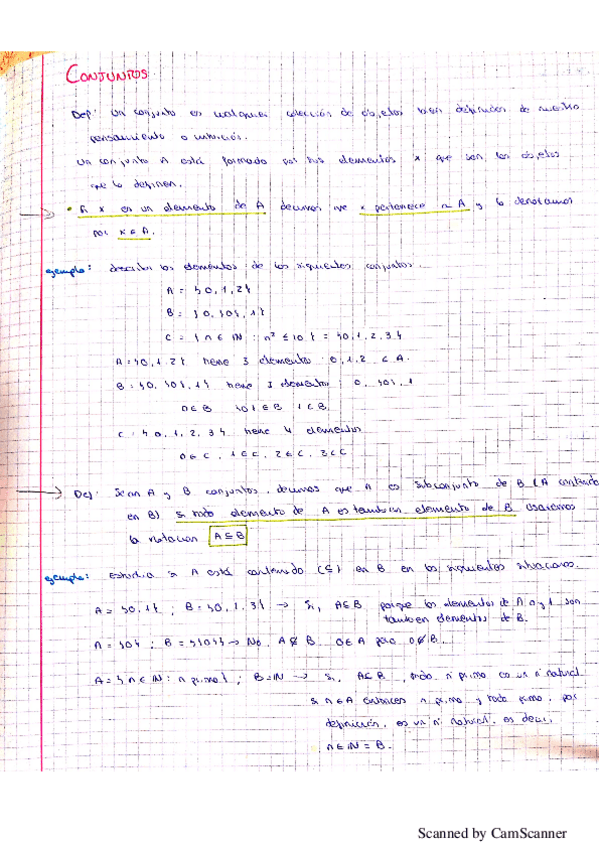 CONJUNTOS
Def: Un conjunto es cualquier colección de objetos bien definidos de nuestro
pensamiento o intuición.
Un conjunto A está formado por sus elementos x que son los objetos
que lo definen.
• Si x es un elemento de A decimos que x pertenece a A y lo denotamos
por x ∈ A.
ejemplo: describir los elementos de los siguientes conjuntos.
A = {0,1,2}
B = {0,{0},1}
C = {n ∈ IN : n² ≤ 10} = {0,1,2,3}
A = {0,1,2} tiene 3 elementos: 0,1,2 ∈ A.
B = {0,{0},1} tiene 3 elementos 0, {0}, 1
0 ∈ B {0} ∈ B 1 ∈ B.
C = {0,1,2,3} tiene 4 elementos
0 ∈ C, 1 ∈ C, 2 ∈ C, 3 ∈ C
Def: Sean A y B conjuntos, decimos que A es subconjunto de B (A contenido
en B) si todo elemento de A es tambien elemento de B usaremos
la notacion A ⊆ B
ejemplo: Estudia si A está contenido (⊆) en B en las siguientes situaciones.
A = {0,1} ; B = {0,1,3} → Si, A ⊆ B porque los elementos de A 0 y 1 son
tambien elementos de B.
A = {0} ; B = {{0}} → No, A ⊈ B 0 ∈ A pero 0 ∉ B.
A = {n ∈ IN : n primo} ; B = IN → Si, A ⊆ B, todo nº primo es un nº natural
Si n ∈ A entonces n primo y todo primo, por
definición, es un nº natural, es decir,
n ∈ IN = B.
Scanned by CamScanner